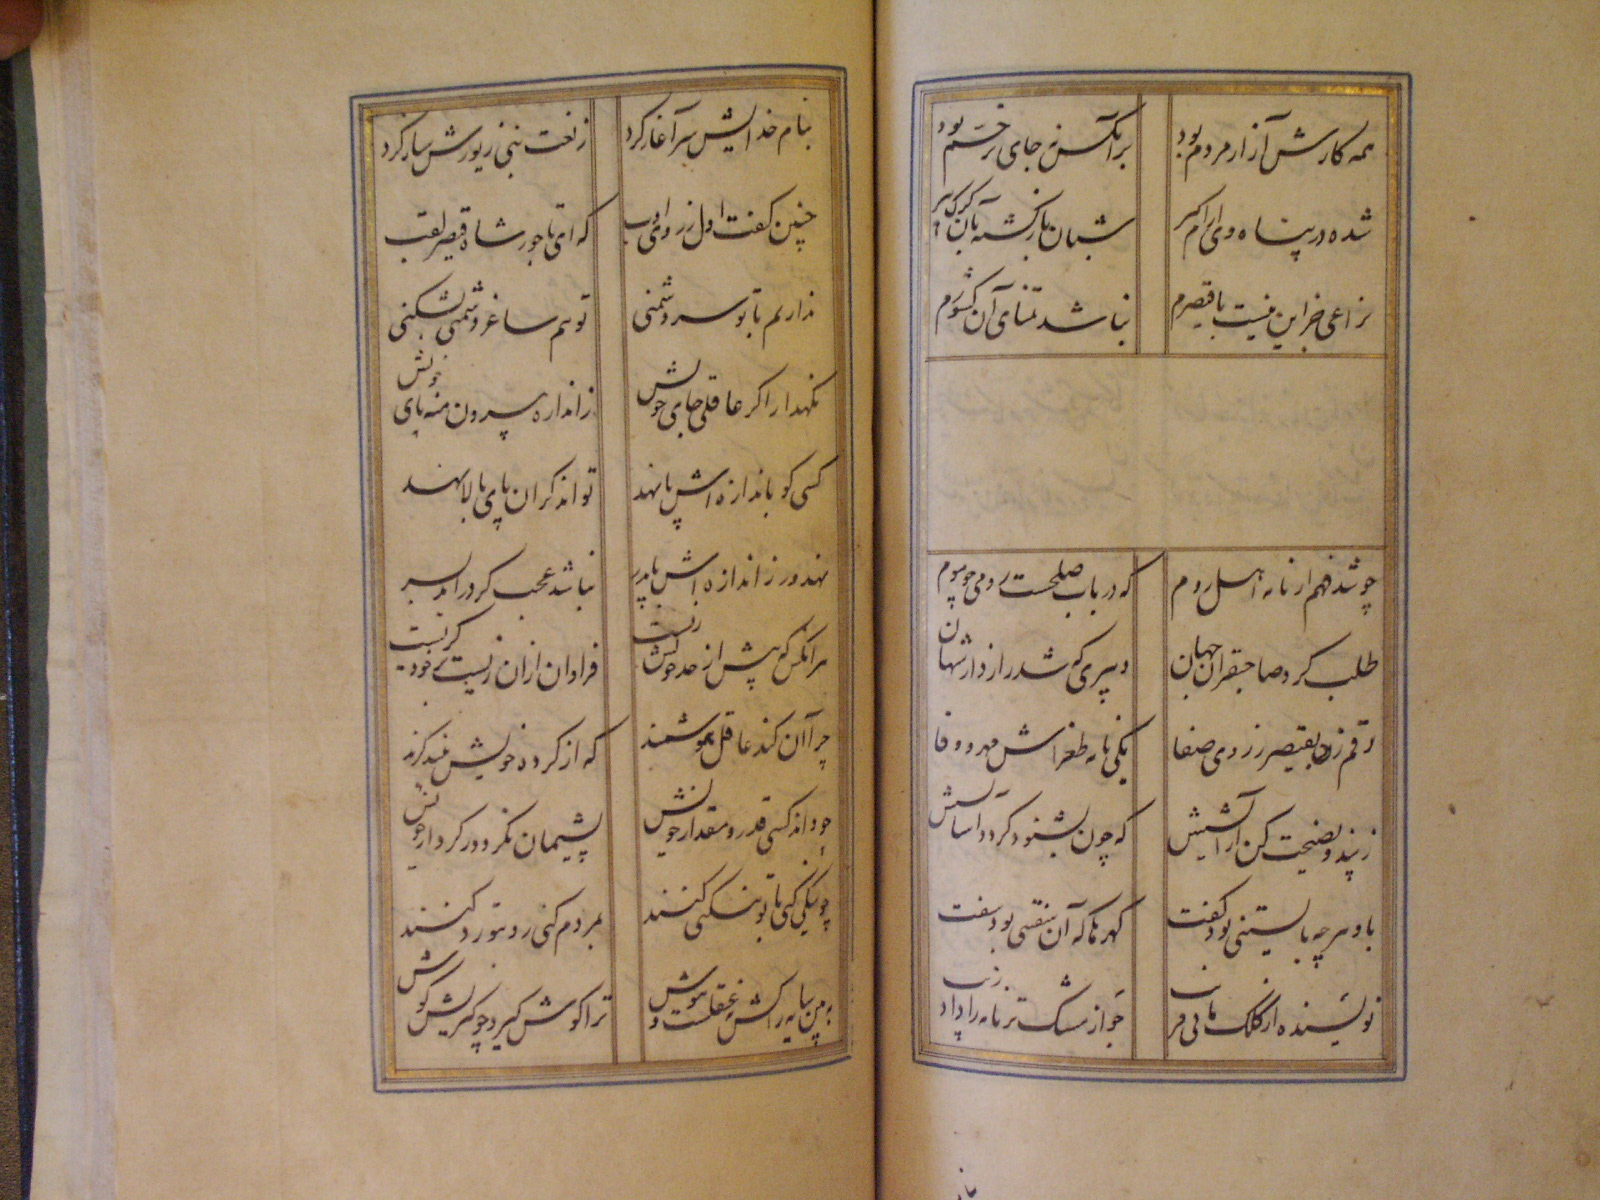 همه کارش آزار مردم بود
بر آنکس نه جای ترحم بود
شده در پناه وی آرام گیر
شبان بازگشته بآن گرگ پیر
نزاعی جز این نیست با قیصرم
نباشد تمنای آن کشورم
چو شد فهم از نامه اهل روم
که در باب صلحست رومی چو موم
طلب کرد صاحبقران جهان
دبیری که شد رازدار شهان
رقم زد بقیصر ز روی صفا
یکی نامه طغراش مهر و وفا
ز پند و نصیحت کن آرایشش
که چون بشنود گردد آسایشش
باو هرچه بایستنی بود گفت
گهرها که آن سفتنی بود سفت
نویسنده از کلک مانی فریب
جواز مشک تر نامه را داد زیب
بنام خدایش سرآغاز کرد
ز نعت نبی زیورش ساز کرد
چنین گفت اول ز روی ادب
که ای تاجور شاه قیصر لقب
نداریم با تو سر دشمنی
تو هم ساغر دشمنی بشکنی
نگهدار اگر عاقلی جای خویش
ز اندازه بیرون منه پای خویش
کسی کو باندازه اش پا نهد
تواند کزان پای بالا نهد
نهد ور ز اندازه اش پا بدر
نباشد عجب گر درآید بسر
هر آنکس که پیش از حد خویش زیست
فراوان از آن زیست بر خود گریست
چرا آن کند عاقل هوشمند
که از کرده خویش بیند گزند
چو داند کسی قدر و مقدار خویش
پشیمان نگردد ز کردار خویش
چو نیکی کنی با تو نیکی کنند
بمردم کنی رد بتو رد کنند
ببین پایه اش عقلست و هوش
ترا گوش گیرد چو گیریش گوش